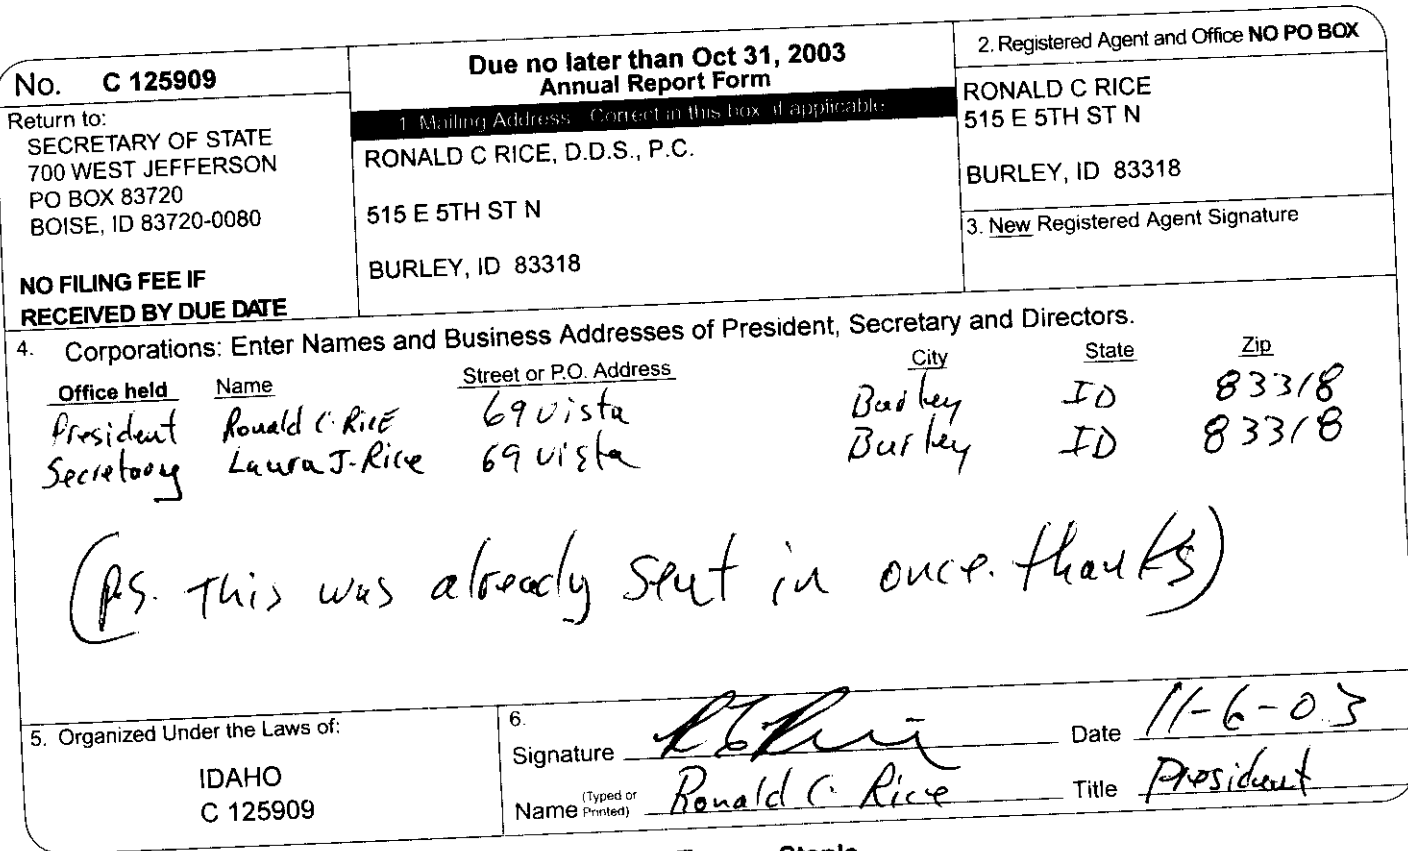 No. C 125909
Return to:
SECRETARY OF STATE
700 WEST JEFFERSON
PO BOX 83720
BOISE, ID 83720-0080
NO FILING FEE IF
RECEIVED BY DUE DATE
Due no later than Oct 31, 2003
Annual Report Form
1. Mailing Address. Correct in this box if applicable.
RONALD C RICE, D.D.S., P.C.
515 E 5TH ST N
BURLEY, ID 83318
2. Registered Agent and Office NO PO BOX
RONALD C RICE
515 E 5TH ST N
BURLEY, ID 83318
3. New Registered Agent Signature
4. Corporations: Enter Names and Business Addresses of President, Secretary and Directors.
Office held Name Street or P.O. Address City State Zip
President Ronald C. RicE 69 vista Burley ID 83318
Secretary Laura J. Rice 69 vista Burley ID 83318
(P.S. This was already sent in once. thanks)
5. Organized Under the Laws of:
IDAHO
C 125909
6.
Signature Date 11-6-03
Name (Typed or Printed) Ronald C. Rice Title President